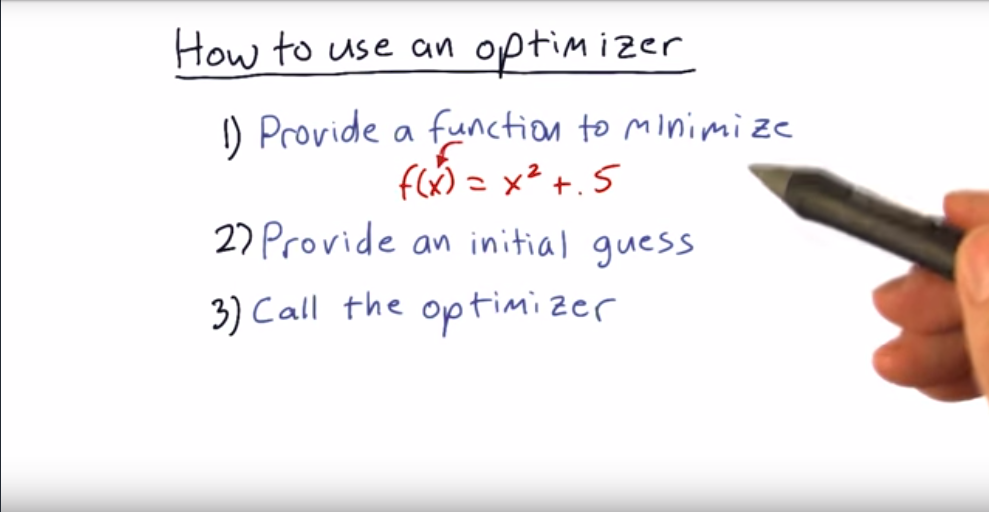 How to use an optimizer
1) Provide a function to minimize
f(x) = x² + .5
2) Provide an initial guess
3) Call the optimizer